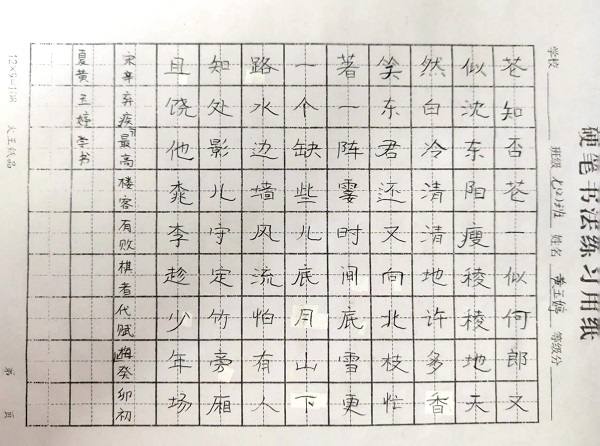 硬笔书法练习用纸
学校 班级 七(2)班 姓名 黄玉婷 等级分
花知否花一似何郎又
似沈东阳瘦稜稜地天
然白冷清清地许多香
笑东君还又向北枝忙
著一阵霎时间底雪更
一个缺些儿底月山下
路水边墙风流怕有人
知处影儿守定竹旁厢
且饶他桃李趁少年场
宋辛弃疾最高楼客有败棋者代赋梅癸卯初
夏黄玉婷学书
12×9=108 纸品 第 页